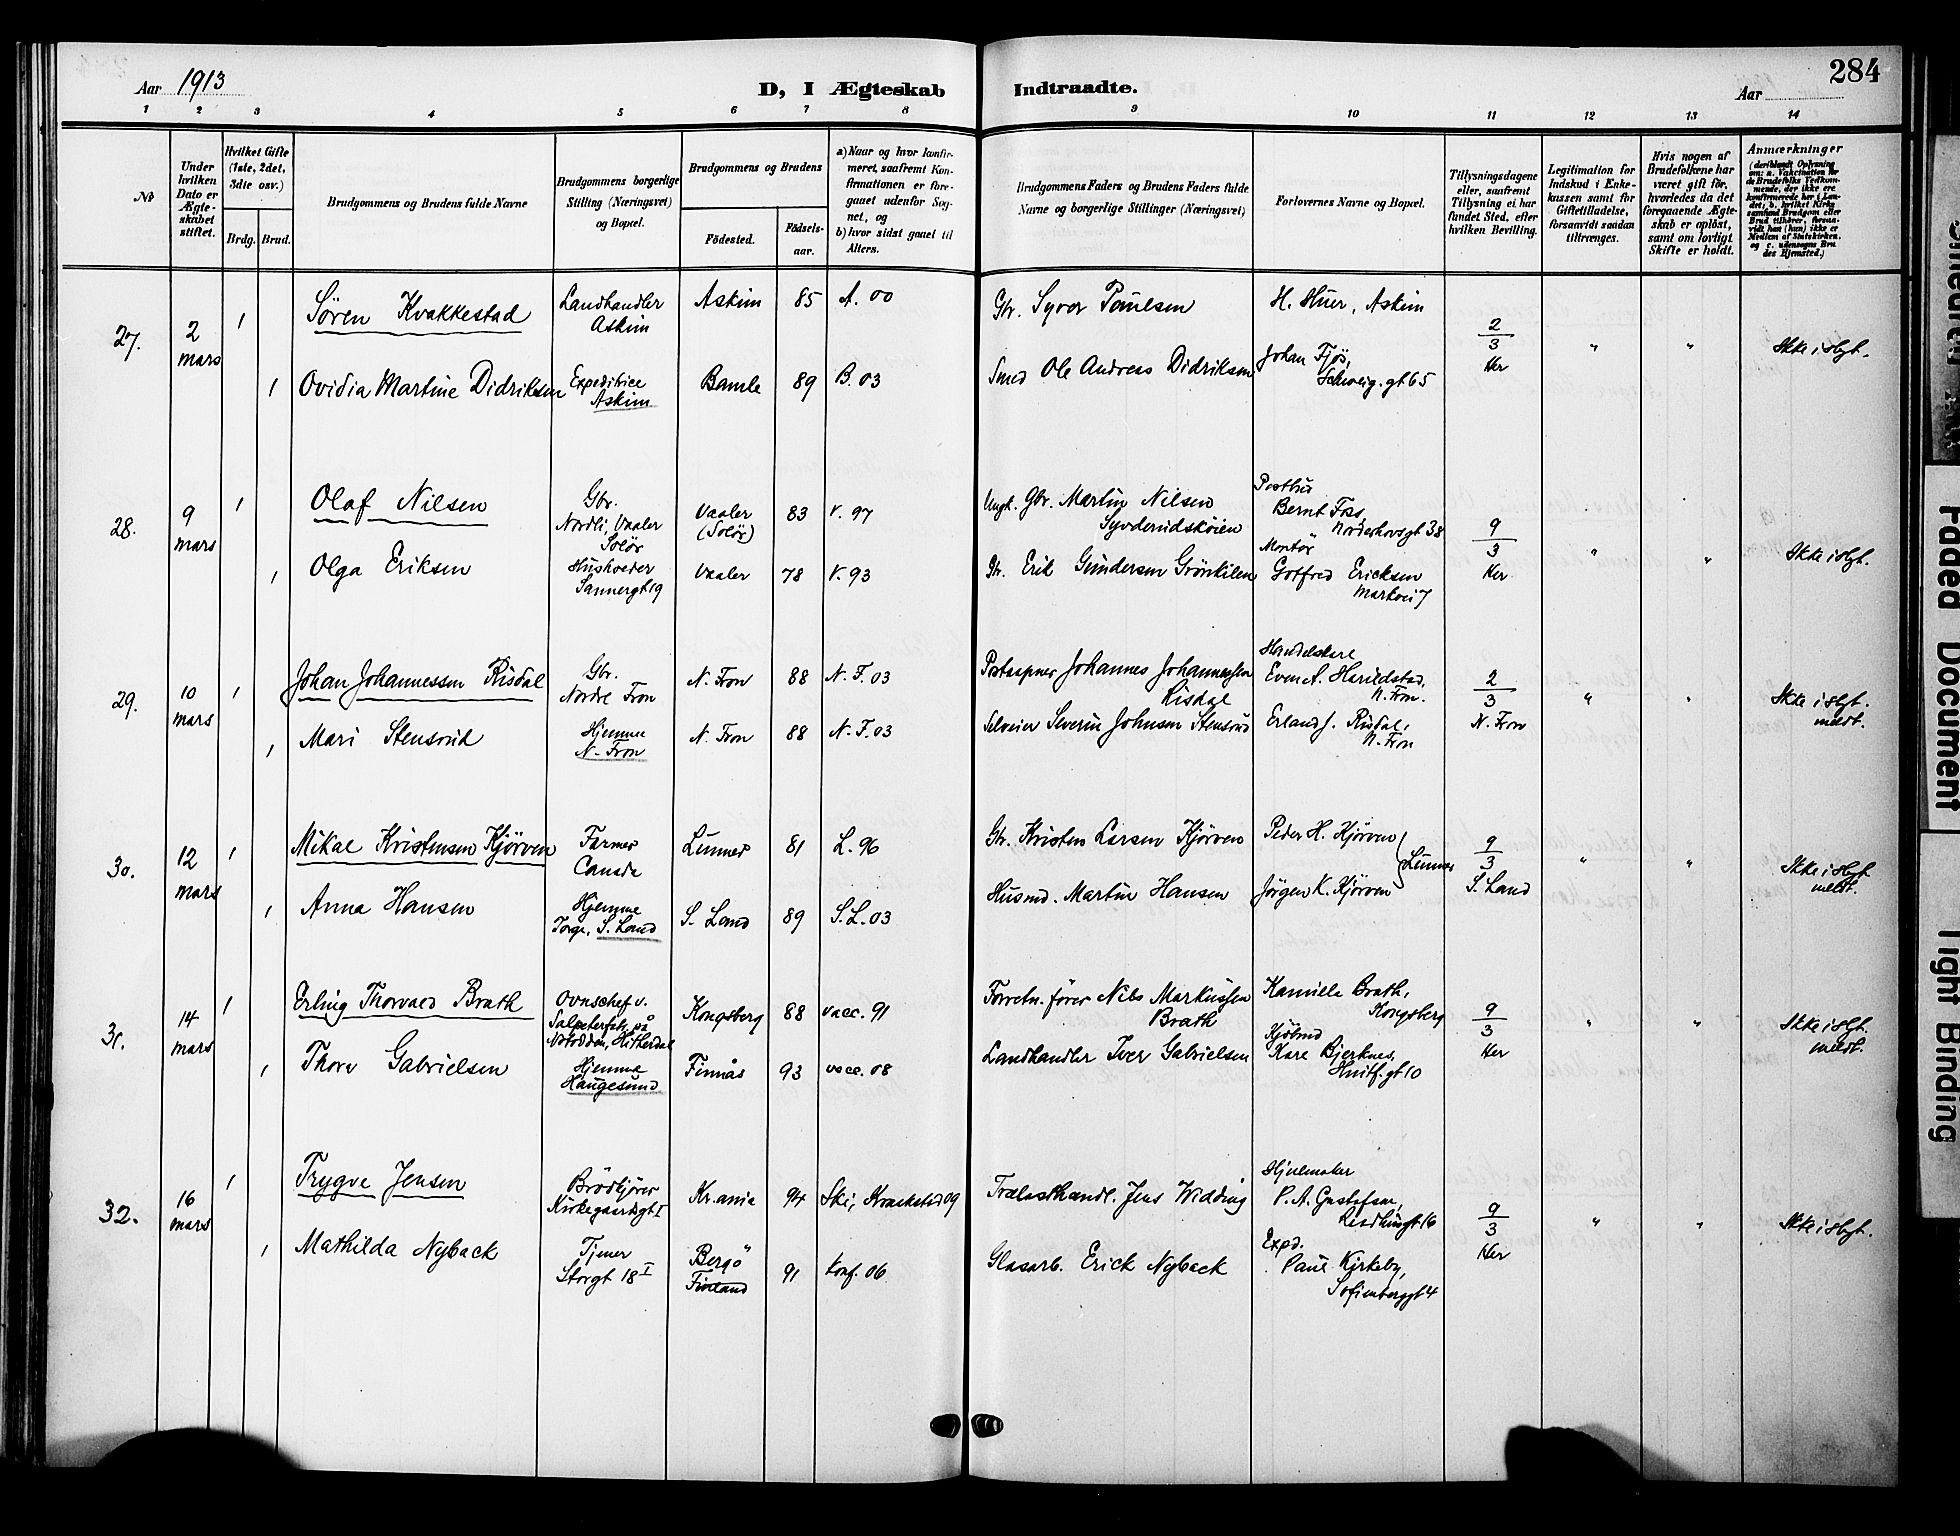 284
Aar 1913
D, I Ægteskab Indtraadte.
Aar
1 2 3 4 5 6 7 8 9 10 11 12 13 14
No
Under hvilken Dato er Ægteskabet stiftet.
Hvilket Gifte (1ste, 2det, 3die osv.)
Brdg. Brud.
Brudgommens og Brudens fulde Navne
Brudgommens borgerlige Stilling (Næringsvei) og Bopæl.
Brudgommens og Brudens
Fødested.
Fødselsaar.
a) Naar og hvor konfirmeret, saafremt Konfirmationen er foregaaet udenfor Sognet, og
b) hvor sidst gaaet til Alters.
Brudgommens Faders og Brudens Faders fulde Navne og borgerlige Stillinger (Næringsvei)
Forlovernes Navne og Bopæl.
Tillysningsdagene eller, saafremt Tillysning ei har fundet Sted, efter hvilken Bevilling.
Legitimation for Indskud i Enkekassen samt for Giftetilladelse, forsaavidt saadan tiltrænges.
Hvis nogen af Brudefolkene har været gift før, hvorledes da det foregaaende Ægteskab er opløst, samt om lovligt Skifte er holdt.
Anmærkninger
(deriblandt Oplysning om: a. Vakcination for de Brudefolks Vedkommende, der ikke ere konfirmerede her i Landet; b. hvilket Kirkesamfund Brudgom eller Brud tilhører, forsaavidt han (hun) ikke er Medlem af Statskirken, og c. udensogns Brudes Hjemsted.)
27. 2 mars 1 Søren Kvakkestad Landhandler Askim Askim 85 A. 00 Gbr. Syver Paulsen H. Huer, Askim 2/3 Her " " Ikke i slgt.
1 Ovidia Martine Didriksen Expeditrice Askim Bamle 89 B. 03 Smed Ole Andreas Didriksen Johan Fjøs, Schweig.gt 65
28. 9 mars 1 Olaf Nilsen Gbr. Nordli, Vaaler Solør Vaaler (Solør) 83 V. 97 Ungk. Gbr. Martin Nilsen Posthus Bernt Foss, Norderhovsgt 38 9/3 Her " " Ikke i slgt.
1 Olga Eriksen Sannergt 19 Vaaler 78 V. 93 Gbr. Erik Gundersen Grönkilen Montör Gotfred Ericksen Markvei 7
29. 10 mars 1 Johan Johannessen Risdal Gbr. Nordre Fron N. Fron 88 N. F. 03 Postaapner Johannes Johannessen Risdal Even A. Harildstad, N. Fron. 2/3 N. Fron " " Ikke i slgt. meldt.
1 Mari Stensrud Hjemme N. Fron N. Fron 88 N. F. 03 Selveier Severin Johnsen Stensrud Erland J. Risdal, N. Fron
30. 12 mars 1 Mikal Kristensen Kjörven Farmer Canada Lunner 81 L. 96 Gbr. Kristen Larsen Kjörven Peder H. Kjörven Lunner 9/3 S. Land " " Ikke i slgt meldt.
1 Anna Hansen Hjemme Torpe, S. Land S. Land 89 S. L. 03 Husmd. Martin Hansen Jörgen K. Kjörven
31. 14 mars 1 Erling Thorvald Brath Ovnschef v. Salpeterfab. på Notodden, Hitterdal Kongsberg 88 vacc. 91 Forretn. förer Nils Markussen Brath Kamilla Brath, Kongsberg 9/3 Her " " Ikke i slgt. meldt.
1 Thora Gabrielsen Hjemme Haugesund Finnås 93 vacc. 08 Landhandler Iver Gabrielsen Kjöbmd Kare Bjerknes, Huitf.gt 10
32. 16 mars 1 Trygve Jensen Brödkjörer Kirkegaardsgt 1 Kr.ania 94 Ski, Kraakstad 09 Trælasthandl. Jens Widding Hjulmaker P. A. Gustafson, 9/3 Her " " Ikke i slgt.
1 Mathilda Nyback Tjener Storgt 18 I Bergö Finland 91 konf. 06 Glasarb. Erick Nyback Exped. Paul Kirkeby, Sofienberggt 4
Faded Document
Tight Binding